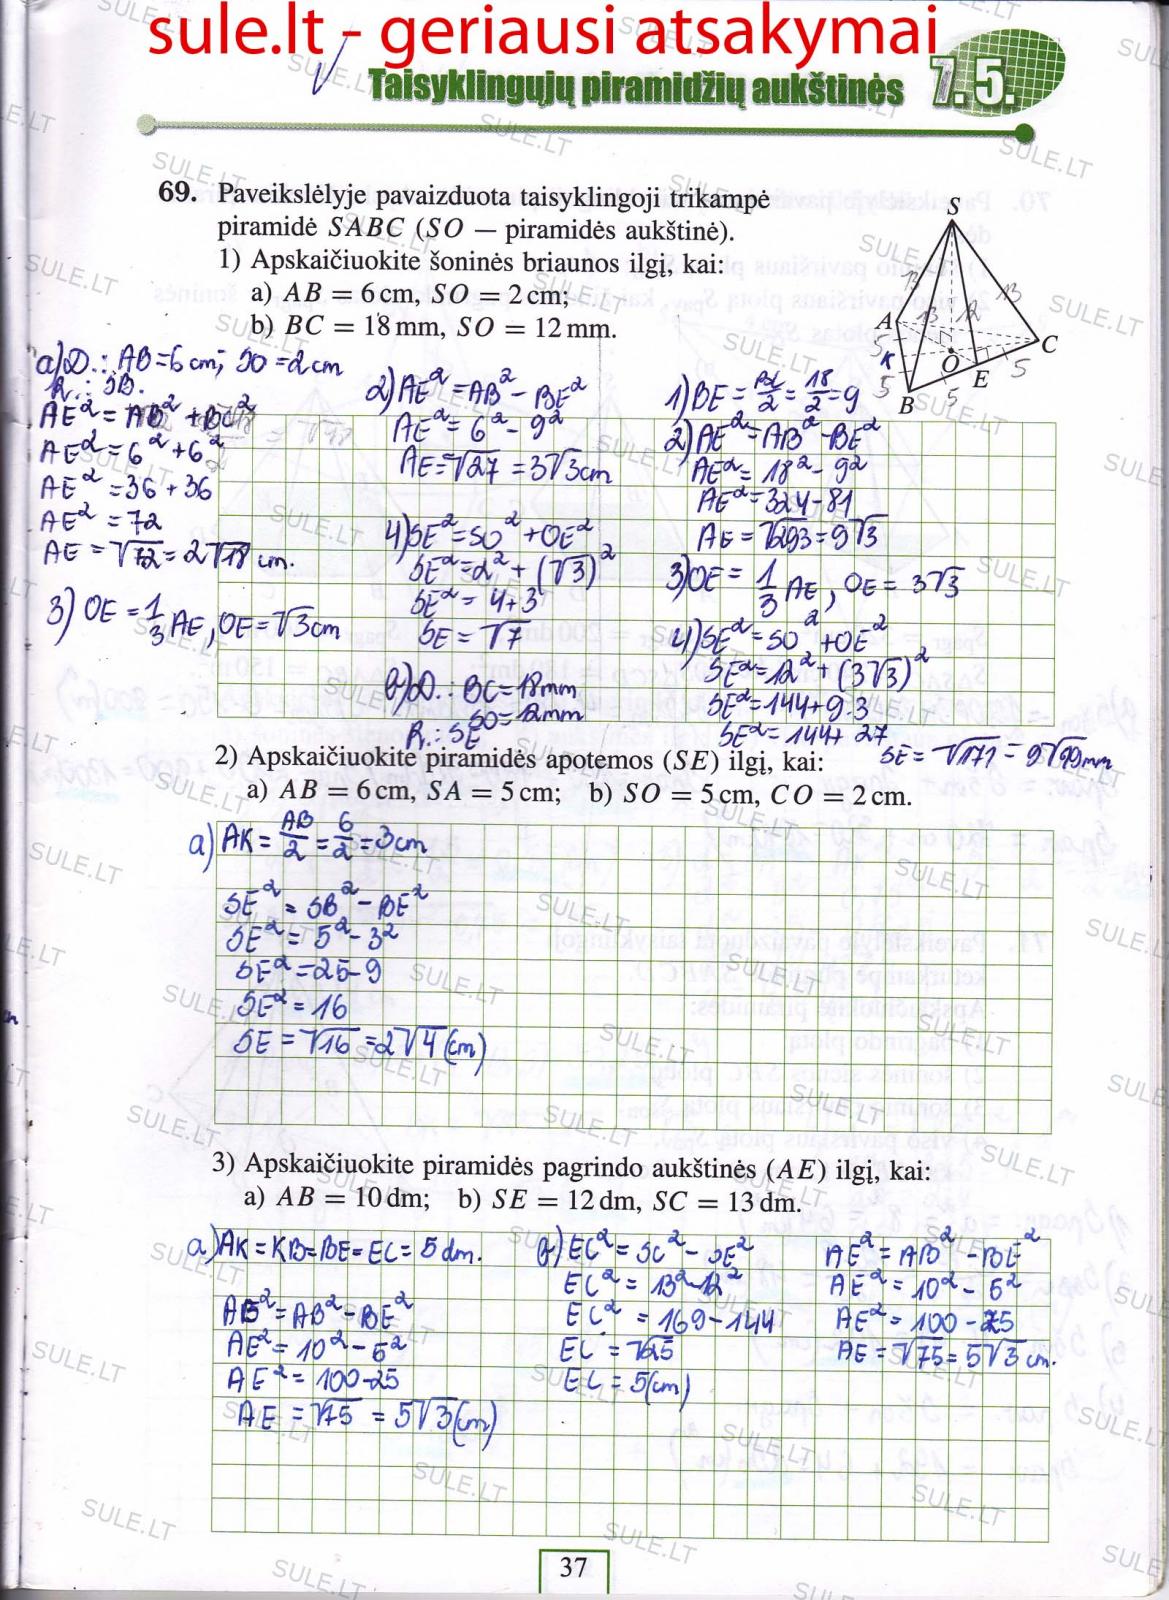 sule.lt - geriausi atsakymai
Taisyklingųjų piramidžių aukštinės 7.5.
69. Paveikslėlyje pavaizduota taisyklingoji trikampė
piramidė SABC (SO — piramidės aukštinė).
1) Apskaičiuokite šoninės briaunos ilgį, kai:
a) AB = 6 cm, SO = 2 cm;
b) BC = 18 mm, SO = 12 mm.
S
13
13
13
12
A
5
K
5
O
C
E
5
B
5
a) D.: AB = 6 cm; SO = 2 cm
R.: SB.
AE² = AB² + BC²
AE² = 6² + 6²
AE² = 36 + 36
AE² = 72
AE = √72 = 2√18 cm.
3) OE = 1/3 AE, OE = √3 cm
2) AE² = AB² - BE²
AE² = 6² - 9²
AE = √27 = 3√3 cm
4) SE² = SO² + OE²
SE² = 2² + (√3)²
SE² = 4+3
SE = √7
b) D.: BC = 18 mm
SO = 12 mm
R.: SE
1) BE = BC/2 = 18/2 = 9
2) AE² = AB² - BE²
AE² = 18² - 9²
AE² = 324 - 81
AE = √293 = 9√3
3) OE = 1/3 AE, OE = 3√3
4) SE² = SO² + OE²
SE² = 12² + (3√3)²
SE² = 144 + 9·3
SE² = 144 + 27
SE = √171 = 9√99 mm
2) Apskaičiuokite piramidės apotemos (SE) ilgį, kai:
a) AB = 6 cm, SA = 5 cm; b) SO = 5 cm, CO = 2 cm.
a) AK = AB/2 = 6/2 = 3 cm
SE² = SB² - BE²
SE² = 5² - 3²
SE² = 25 - 9
SE² = 16
SE = √16 = 2√4 (cm)
3) Apskaičiuokite piramidės pagrindo aukštinės (AE) ilgį, kai:
a) AB = 10 dm; b) SE = 12 dm, SC = 13 dm.
a) AK = KB = BE = EC = 5 dm.
AE² = AB² - BE²
AE² = 10² - 5²
AE² = 100 - 25
AE = √75 = 5√3 (cm)
b) EC² = SC² - SE²
EC² = 13² - 12²
EC² = 169 - 144
EC = √25
EC = 5 (cm)
AE² = AB² - BE²
AE² = 10² - 5²
AE² = 100 - 25
AE = √75 = 5√3 cm.
37
SULE.LT